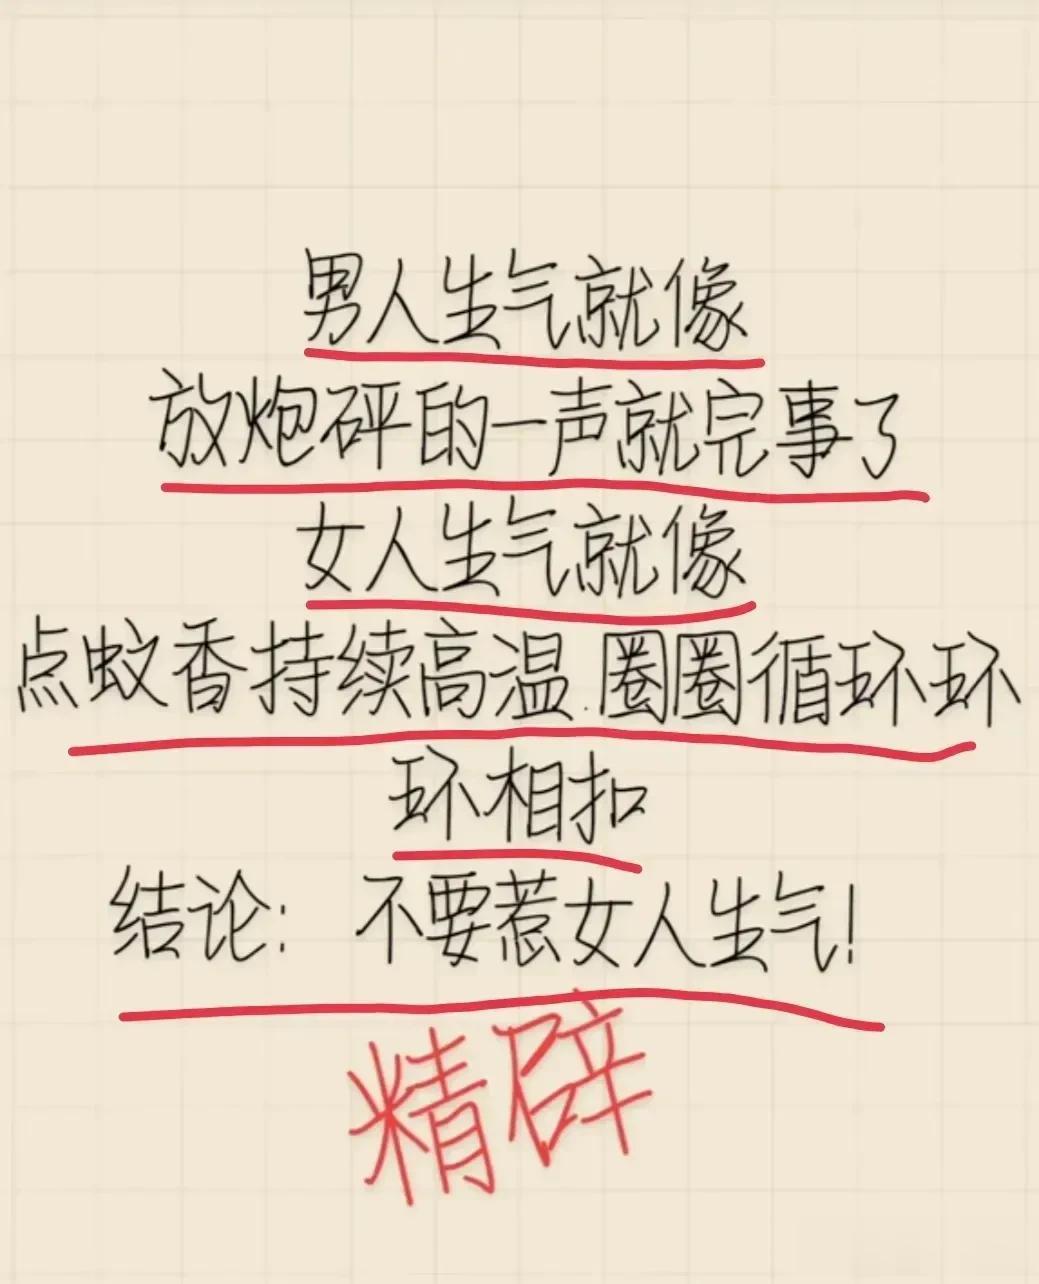 男人生气就像
放炮砰的一声就完事了
女人生气就像
点蚊香持续高温.圈圈循环环
环相扣
结论：不要惹女人生气！
精辟